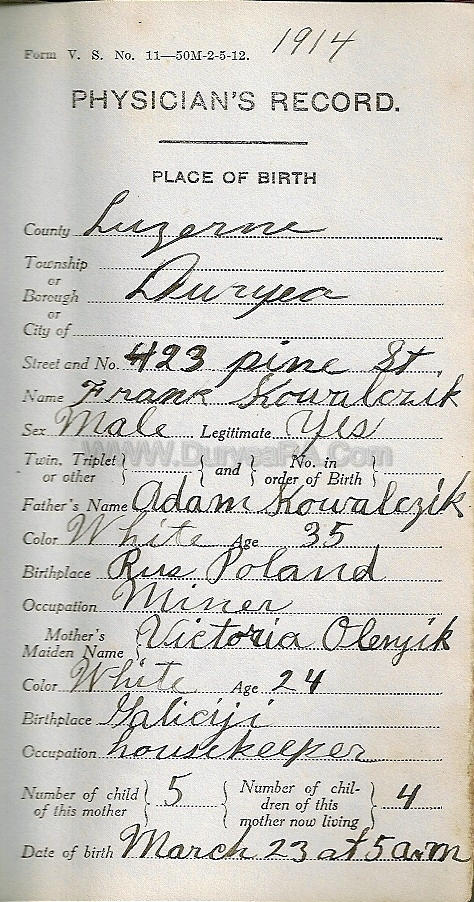 1914
Form V. S. No. 11—50M-2-5-12.
PHYSICIAN'S RECORD.
PLACE OF BIRTH
County Luzerne
Township
or
Borough Duryea
or
City of
Street and No. 423 pine St.
Name Frank Kowalczik
Sex Male Legitimate Yes
WWW.DuryeaPA.Com
Twin, Triplet or other } { and { No. in order of Birth }
Father's Name Adam Kowalczik
Color White Age 35
Birthplace Rus Poland
Occupation Miner
Mother's Maiden Name } Victoria Olenjik
Color White Age 24
Birthplace Galiciji
Occupation housekeeper
Number of child of this mother } 5 { Number of chil-dren of this mother now living } 4
Date of birth March 23 at 5 a.m